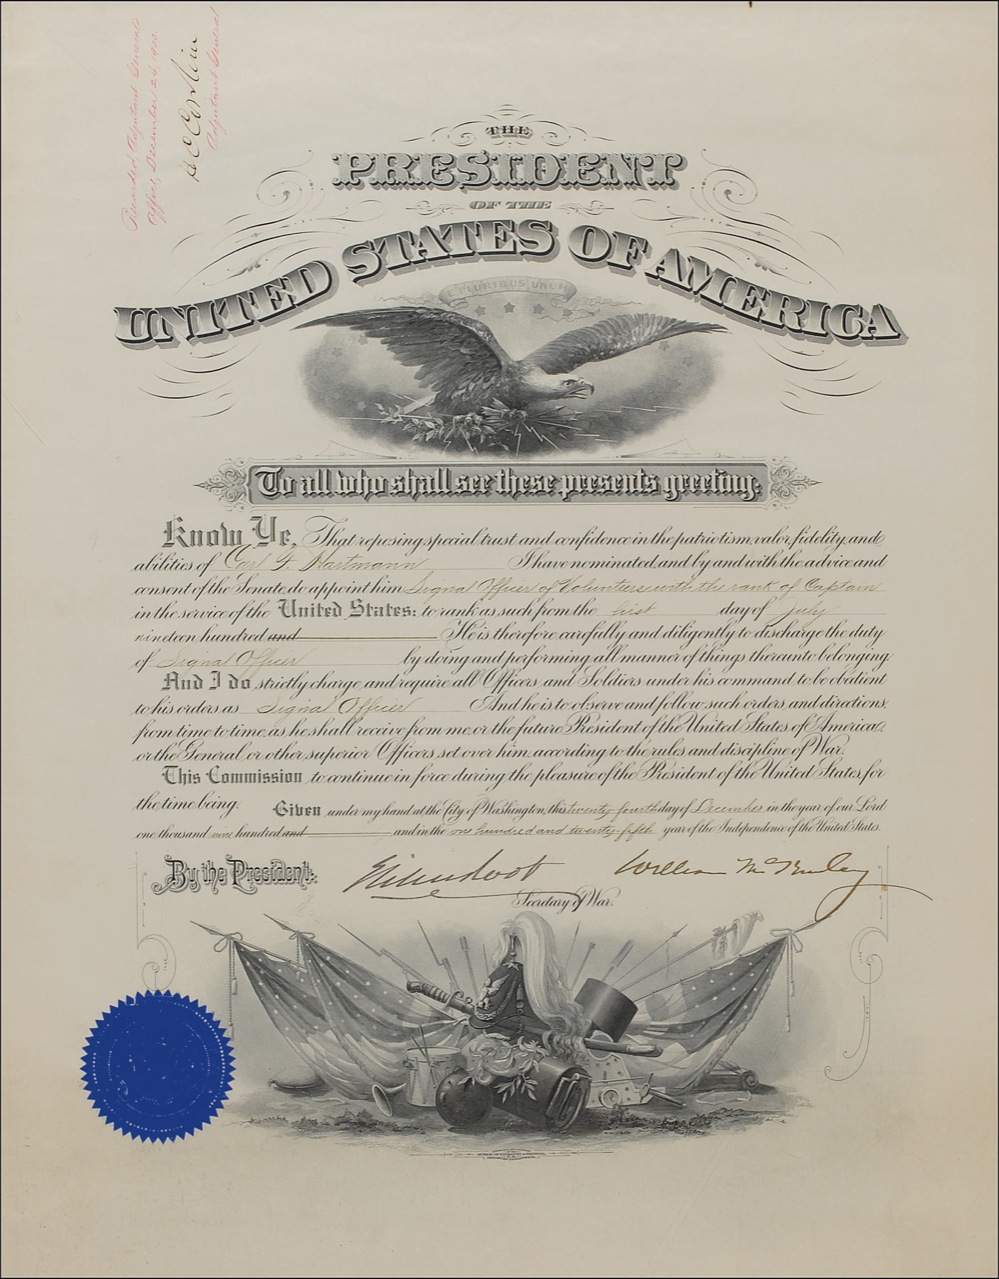 Recorded Adjutant General's
Office, December 24, 1900.
H C Corbin
Adjutant General
THE
PRESIDENT
OF THE
UNITED STATES OF AMERICA
E PLURIBUS UNUM
To all who shall see these presents greeting:
Know Ye, That reposing special trust and confidence in the patriotism, valor, fidelity and
abilities of Carl F. Hartmann I have nominated, and by and with the advice and
consent of the Senate, do appoint him Signal Officer of Volunteers with the rank of Captain
in the service of the United States: to rank as such from the first day of July
nineteen hundred and He is therefore carefully and diligently to discharge the duty
of Signal Officer by doing and performing all manner of things thereunto belonging.
And I do strictly charge, and require all Officers, and Soldiers under his command to be obedient
to his orders as Signal Officer And he is to observe and follow such orders and directions,
from time to time, as he shall receive from me, or the future President of the United States of America,
or the General, or other superior Officers set over him, according to the rules and discipline of War.
This Commission to continue in force during the pleasure of the President of the United States, for
the time being. Given under my hand at the City of Washington, this twenty fourth day of December in the year of our Lord
one thousand nine hundred and and in the one hundred and twenty fifth year of the Independence of the United States.
By the President:
Elihu Root
William McKinley
Secretary of War.